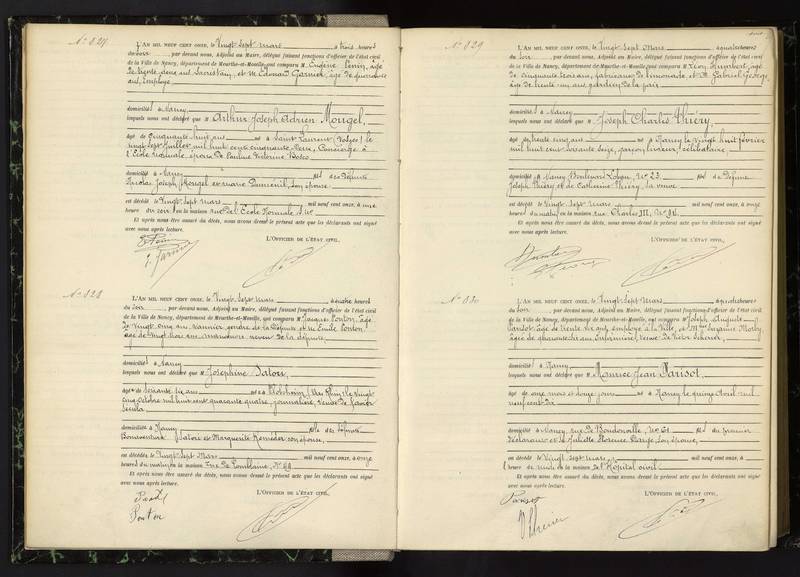 N° 827
L'AN MIL NEUF CENT ONZE, le Vingt Sept mars à trois heures
du soir, par devant nous, Adjoint au Maire, délégué faisant fonctions d'officier de l'état civil
de la Ville de Nancy, département de Meurthe-et-Moselle, ont comparu M. Eugène Pénin, âgé
de trente deux ans, Sacristain, et M. Edouard Garnier, âgé de quarante
ans, Employé
domiciliés à Nancy
lesquels nous ont déclaré que M Arthur Joseph Adrien Mougel,
âgé de Cinquante huit ans né à Saint Laurent (Vosges) le
vingt Sept Juillet mil huit cent cinquante, Concierge à
l'Ecole normale, époux de Pauline Victorine
domicilié à Nancy fils des défunts
Nicolas Joseph Mougel et Marie Dumenil, son épouse,
est décédé le Vingt Sept mars mil neuf cent onze, à une
heure du soir en la maison rue de l'Ecole Normale
Et après nous être assuré du décès, nous avons dressé le présent acte que les déclarants ont signé
avec nous après lecture.
L'OFFICIER DE L'ÉTAT CIVIL,
N° 828
L'AN MIL NEUF CENT ONZE, le Vingt Sept Mars à quatre heures
du Soir, par devant nous, Adjoint au Maire, délégué faisant fonctions d'officier de l'état civil
de la Ville de Nancy, département de Meurthe-et-Moselle, ont comparu M. Jacques Ponton, âgé
de Vingt cinq ans, Vannier, gendre de la défunte et M. Emile Ponton
âgé de vingt trois ans, manœuvre, neveu de la défunte,
domiciliés à Nancy
lesquels nous ont déclaré que M Joséphine Satori,
âgée de Soixante six ans née à (Bas Rhin) le vingt
cinq Octobre mil huit cent quarante quatre, journalière, Veuve de Xavier
domiciliée à Nancy fille des défunts
Bonaventure Satori et Marguerite son épouse,
est décédée, le Vingt Sept Mars mil neuf cent onze, à onze
heures du matin en la maison rue de
Et après nous être assuré du décès, nous avons dressé le présent acte que les déclarants ont signé
avec nous après lecture.
L'OFFICIER DE L'ÉTAT CIVIL,
Ponton
N° 829
L'AN MIL NEUF CENT ONZE, le Vingt Sept Mars, à quatre heures
du Soir, par devant nous, Adjoint au Maire, délégué faisant fonctions d'officier de l'état civil
de la Ville de Nancy, département de Meurthe-et-Moselle, ont comparu M. Léon Humbert, âgé
de cinquante trois ans, fabricant de limonade, et M. Gabriel George,
âgé de trente cinq ans, gardien de la paix
domiciliés à Nancy
lesquels nous ont déclaré que M Joseph Charles Thiéry,
âgé de trente cinq ans né à Nancy le vingt huit février
mil huit cent soixante seize, garçon livreur, célibataire,
domicilié à Nancy Boulevard Lobau, N° 23 fils de défunt
Joseph Thiéry et de Catherine Thiéry, sa veuve
est décédé le Vingt Sept mars mil neuf cent onze, à onze
heures du matin en la maison rue Charles III, N° 94
Et après nous être assuré du décès, nous avons dressé le présent acte que les déclarants ont signé
avec nous après lecture.
L'OFFICIER DE L'ÉTAT CIVIL,
N° 830
L'AN MIL NEUF CENT ONZE, le Vingt Sept Mars, à quatre heures
du Soir, par devant nous, Adjoint au Maire, délégué faisant fonctions d'officier de l'état civil
de la Ville de Nancy, département de Meurthe-et-Moselle, ont comparu M. Joseph Auguste
Parisot, âgé de trente six ans, employé à la Ville, et Mme Suzanne
âgée de quarante six ans, Infirmière, veuve de Victor
domiciliés à Nancy
lesquels nous ont déclaré que M Maurice Jean Parisot,
âgé de onze mois et douze jours né à Nancy le quinze Avril mil
neuf cent dix
domicilié à Nancy, rue de Boudonville, N° 61 fils du premier
déclarant et de Juliette Florence son épouse,
est décédé le Vingt Sept mars mil neuf cent onze, à
heure de midi en la maison de l'Hôpital civil
Et après nous être assuré du décès, nous avons dressé le présent acte que les déclarants ont signé
avec nous après lecture.
L'OFFICIER DE L'ÉTAT CIVIL,
Parisot